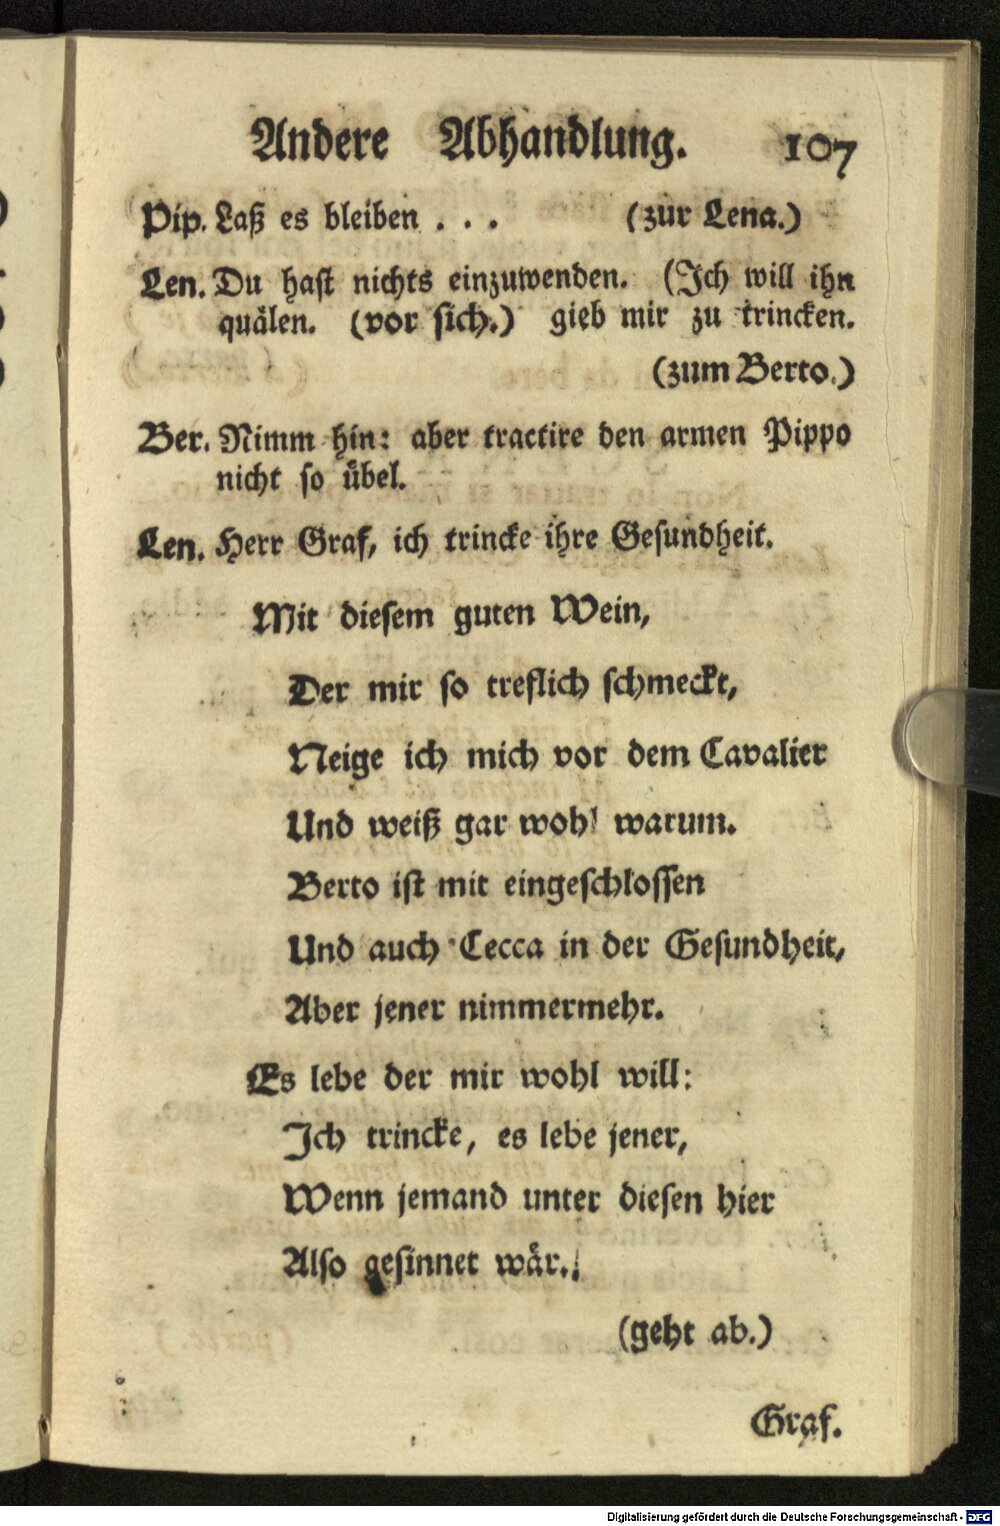 Andere Abhandlung. 107
Pip. Laß es bleiben . . . (zur Lena.)
Len. Du hast nichts einzuwenden. (Ich will ihn
quälen. (vor sich.) gieb mir zu trincken.
(zum Berto.)
Ber. Nimm hin: aber tractire den armen Pippo
nicht so übel.
Len. Herr Graf, ich trincke ihre Gesundheit.
Mit diesem guten Wein,
Der mir so treflich schmeckt,
Neige ich mich vor dem Cavalier
Und weiß gar wohl warum.
Berto ist mit eingeschlossen
Und auch Cecca in der Gesundheit,
Aber jener nimmermehr.
Es lebe der mir wohl will:
Ich trincke, es lebe jener,
Wenn jemand unter diesen hier
Also gesinnet wär.
(geht ab.)
Graf.
Digitalisierung gefördert durch die Deutsche Forschungsgemeinschaft - DFG